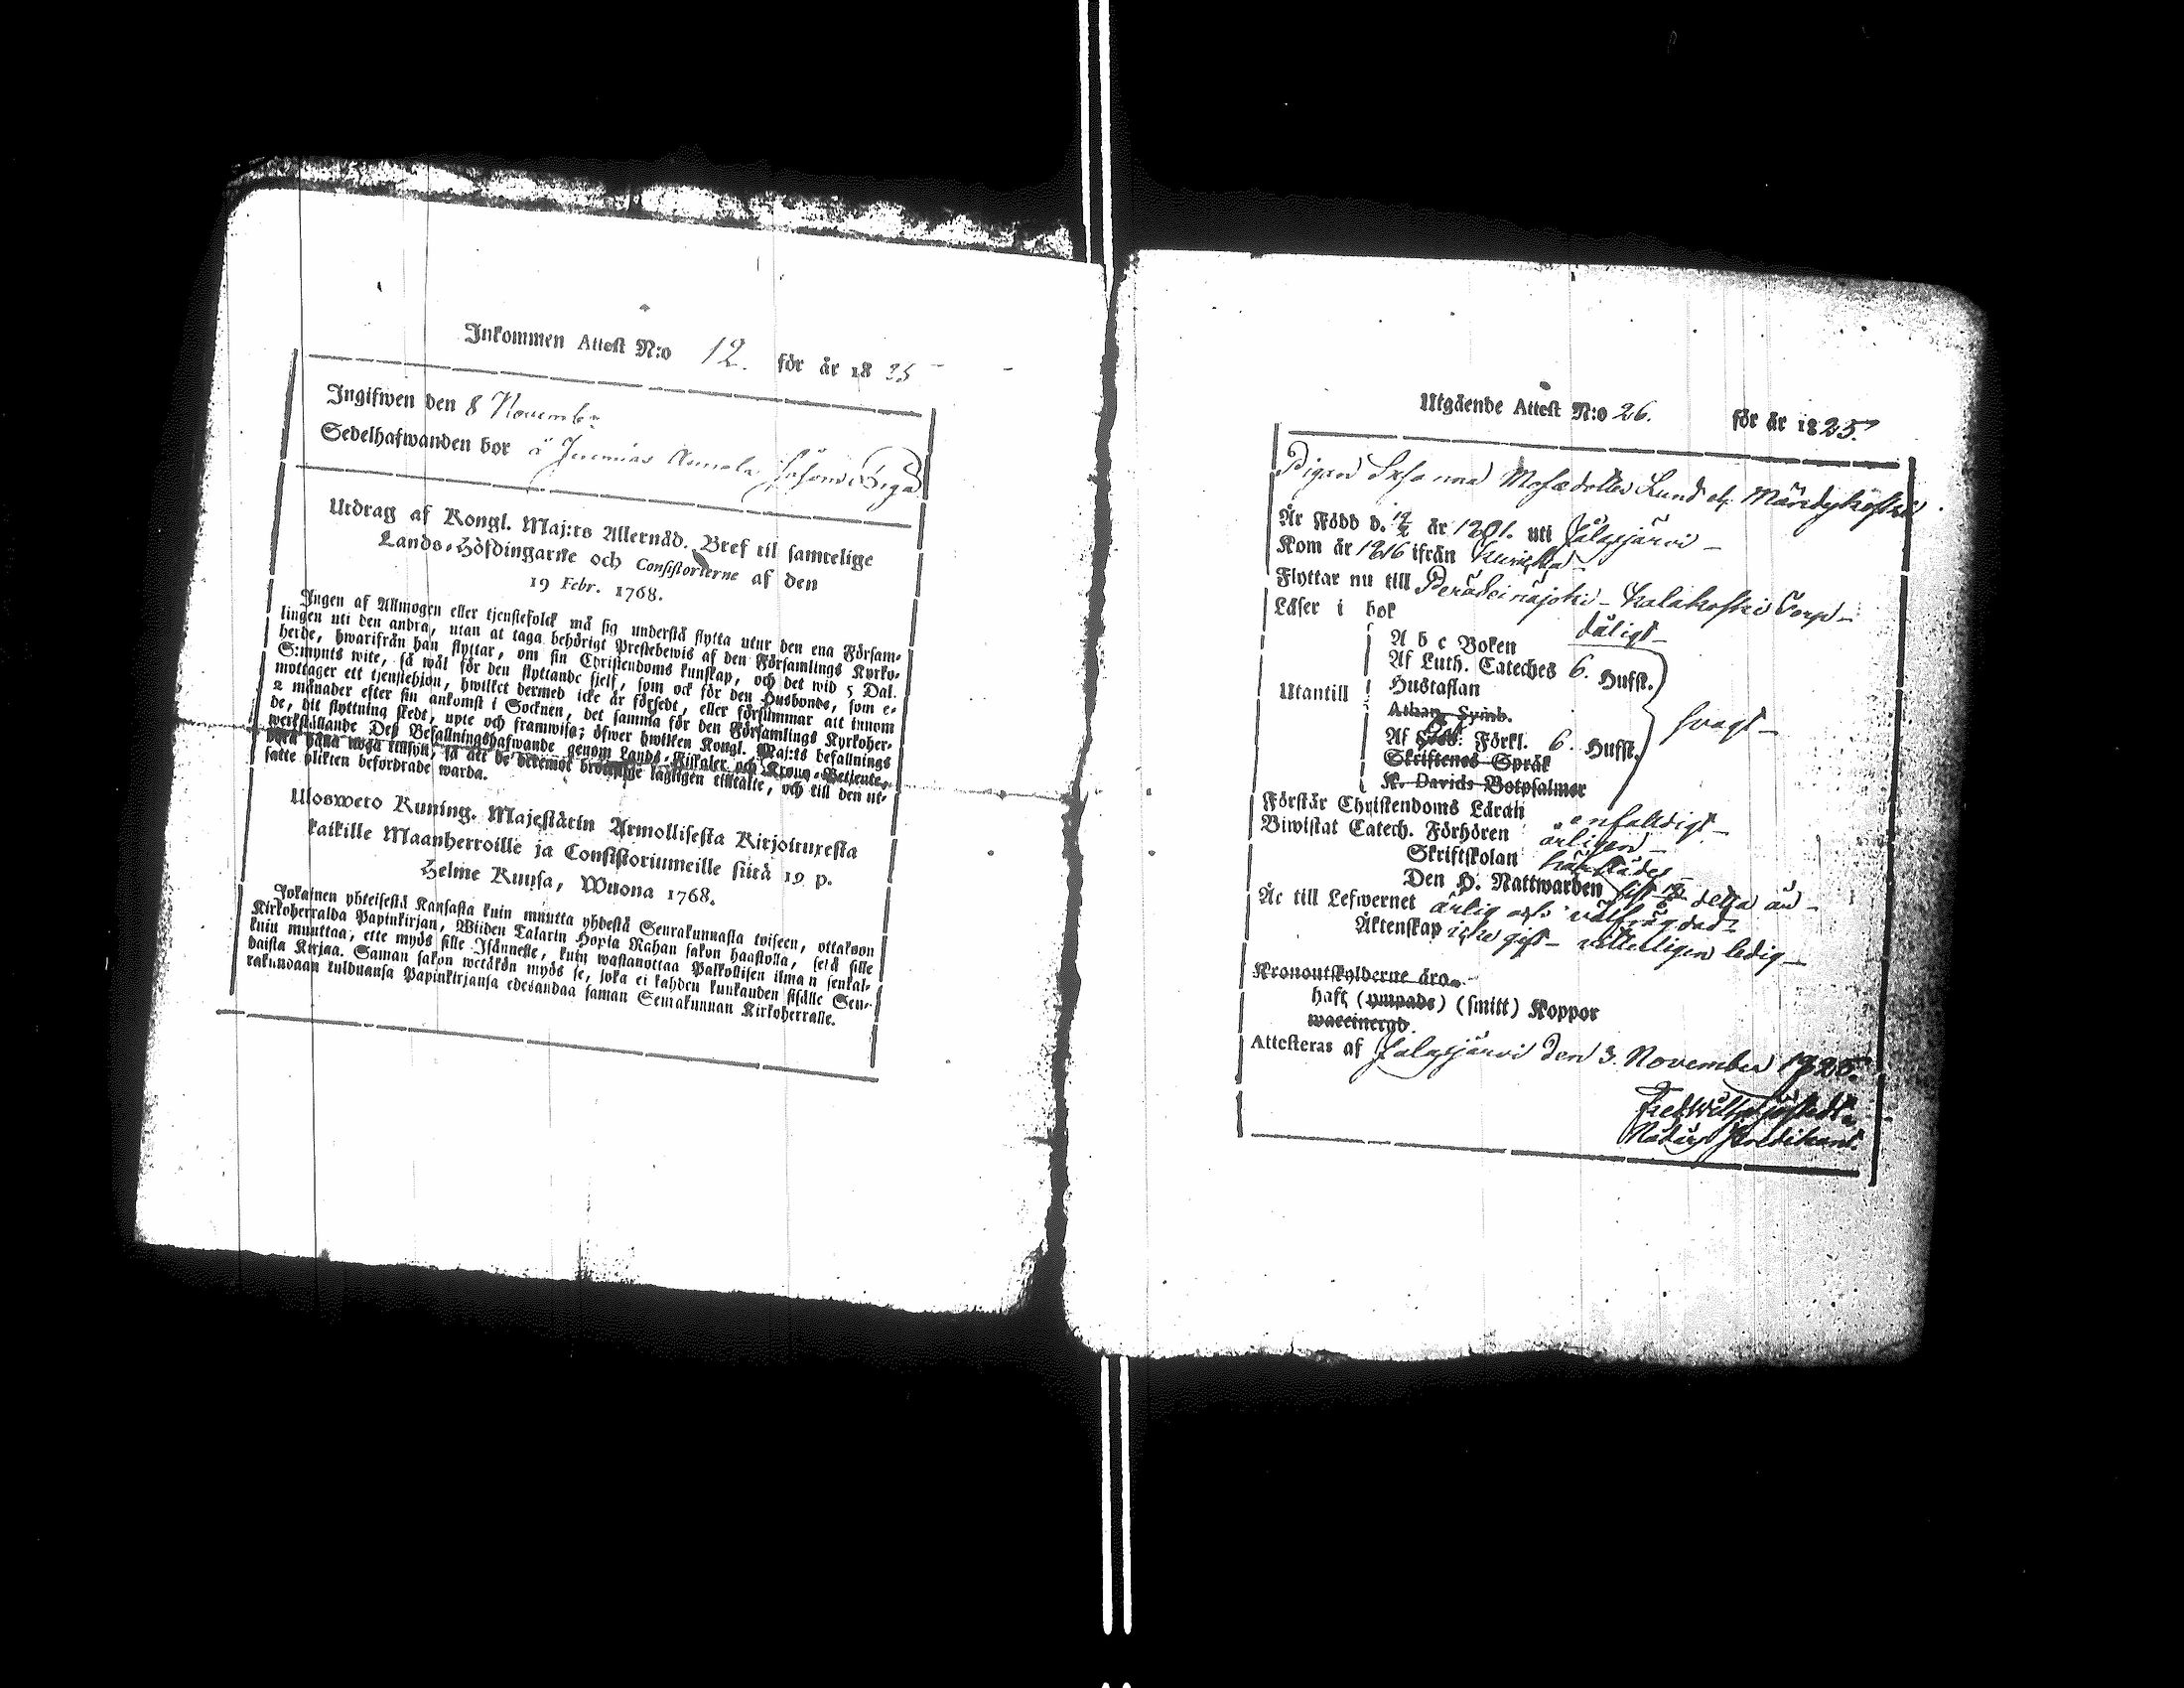 Inkommen Attest N:o 12. för år 18 25
Ingifwen den 8 Novembr
Sedelhafwanden bor å Jeremias Annala
Utdrag af Kongl. Maj:ts Allernåd. Bref til samtelige
Lands-Höfdingarne och Consistorierne af den
19 Febr. 1768.
Ingen af Allmogen eller tjenstefolck må sig understå flytta utur den ena Försam-
lingen uti den andra, utan at taga behörigt Prestebewis af den Församlings Kyrko-
herde, hwarifrån han flyttar, om sin Christendoms kunskap, och det wid 5 Dal.
S:mynts wite, så wäl för den flyttande sjelf, som ock för den Husbonde, som e-
mottager ett tjenstehjon, hwilket dermed icke är försedt, eller försummar att innom
2 månader efter sin ankomst i Socknen, det samma för den Församlings Kyrkoher-
de, dit flyttning skedt, upte och framwisa; öfwer hwilken Kongl. Maj:ts befallnings
werkställande Deß Befallningshafwande genom Lands-Fiskaler och Krono-Betjente,
böra hålla noga tillsyn, så att de deremot brottslige lagligen tilltalte, och till den ut-
satte plikten befordrade warda.
Ulosweto Kuning. Majestätin Armollisesta Kirjoituxesta
kaikille Maanherroille ja Consistoriumeille siitä 19 p.
Helme Kuusa, Wuona 1768.
Jokainen yhteisestä Kansasta kuin muutta yhdestä Seurakunnasta toiseen, ottakoon
Kirkoherralda Papinkirjan, Wiiden Talarin Hopia Rahan sakon haastolla, setä sille
kuin muuttaa, ette myös sille Isännelle, kuin wastanottaa Palkollisen ilman senkal-
daista Kirjaa. Saman sakon wetäkön myös se, joka ei kahden kuukauden sisälle Seu-
rakundaan tulduansa Papinkirjansa edesandaa saman Seurakunnan Kirkoherralle.
Utgående Attest N:o 26. för år 1825.
Pigan Susanna Lund Mändykoski
Är Född d. år 1801. uti Jalasjärvi
Kom år 1816 ifrån Kurikka
Flyttar nu till Peräseinäjoki Kalakoski Torp
Läser i bok
A b c Boken dåligt
Af Luth. Cateches 6. Hufst.
Utantill Hustaflan
Athan. Symb.
Af Förkl. 6. Hufst. svagt
Skriftenes Språk
K. Davids Botpsalmer
Förstår Christendoms Läran enfaldigt
Biwistat Catech. Förhören årligen
Skriftskolan
Den H. Nattwarden sist detta år
Är till Lefwernet ärlig och välfrägdad
Äktenskap icke gift ledig
Kronoutskylderne äro
haft (ympade) (smitt) Koppor
waccinerad.
Attesteras af Jalasjärvi den 3. November 1825.